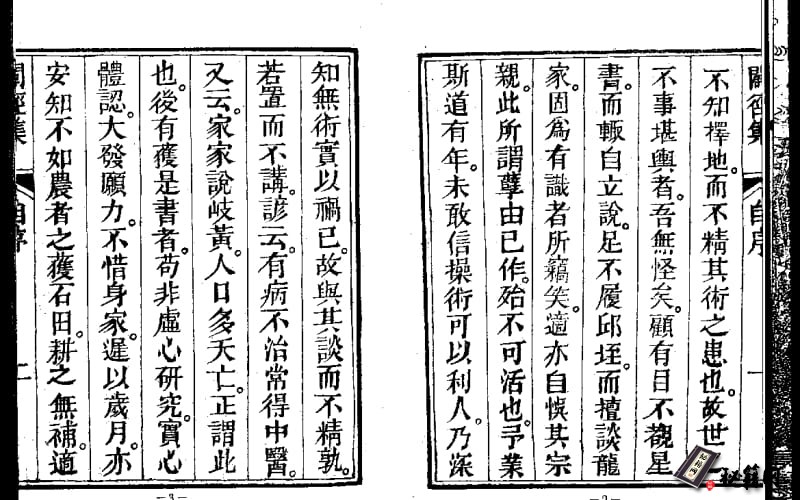 不知擇地而不精其術之患也。故世
不事堪輿者。吾無怪矣。顧有目不覩星
書。而輙自立說。足不履邱垤。而擅談龍
家。固爲有識者所竊笑。適亦自悞其宗
親。此所謂孽由已作。殆不可活也。予業
斯道有年。未敢信操術可以利人。乃深
自序
一
—2—
知無術實以禍已。故與其談而不精。孰
若置而不講。諺云。有病不治常得中醫。
又云。家家說岐黃。人口多夭亡。正謂此
也。後有獲是書者。苟非虛心硏究。實心
體認。大發願力。不惜身家。遲以歲月。亦
安知不如農者之獲石田。耕之無補。適
自序
二
—3—
秘籍